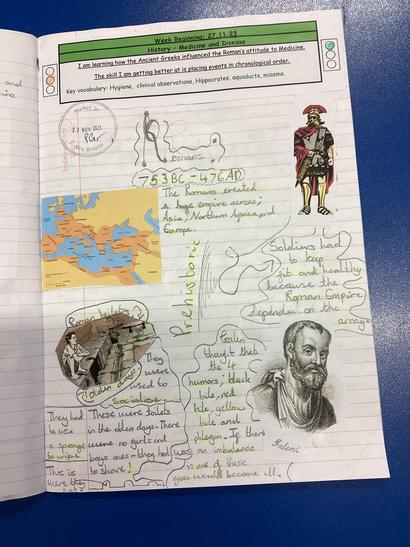 and
Week Beginning: 27.11.23
History – Medicine and Disease
I am learning how the Ancient Greeks influenced the Roman's attitude to Medicine.
The skill I am getting better at is placing events in chronological order.
Key vocabulary: Hygiene, clinical observations, Hippocrates, aquaducts, miasma.
Marked by
27 NOV 2023
Mrs
Romans
753BC - 476AD
The Romans created
a huge empire across;
Asia, Northern Africa, and
Europe.
Prehistoric
Soldiers had
to keep
fit and healthy
because the
Roman Empire
depended on the
army.
Roman toilets
olden days
They
were
used to
socialise.
They had
to use
a sponge
to wipe
This is
were they
These were toilets
in the olden days. There
were no girls and
boys ones - they had
to share!
Galen
thought that
the 4
humors; black
bile, red
bile, yellow
bile and
phlegm. If there
was an imbalance
in one of these
you would become ill.
Galen.